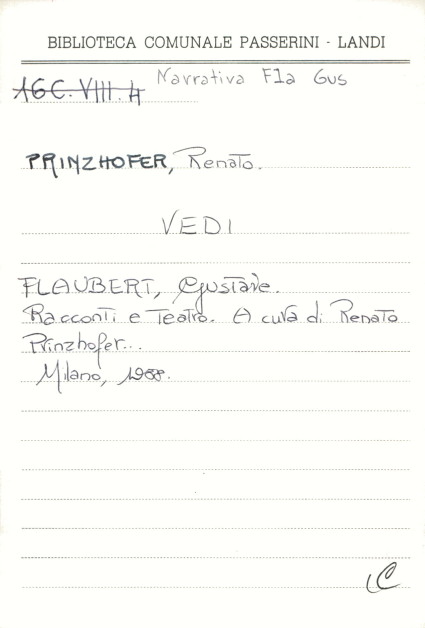 BIBLIOTECA COMUNALE PASSERINI - LANDI
16C.VIII.4 Narrativa Fla Gus
PRINZHOFER, Renato.
VEDI
FLAUBERT, Gustave.
Racconti e Teatro. A cura di Renato
Prinzhofer...
Milano, 1988.